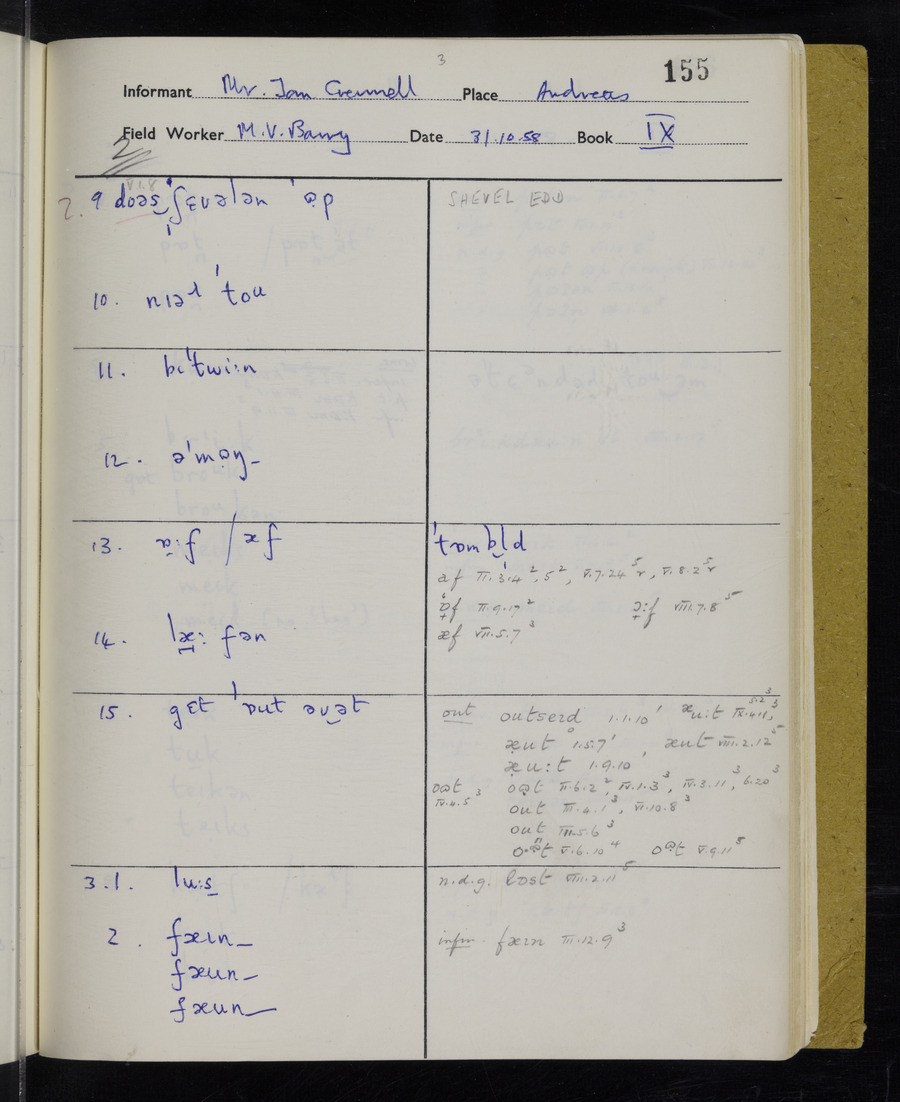 3
155
Informant Mr. Tom Crennell Place Andreas
Field Worker M.V. Barry Date 31.10.58 Book IX
2
VI.8
2. 9 doəs ʃɛvələn ˈəp SHEVEL EDD
10. nɪəɹ ˈtou
11. bɪˈtwiːn
12. əˈmɒŋ_
13. ɒːf / æf ˈtɒmbld
af II.3.4², 5², V.7.24⁵r, V.8.2⁵r
ɒf II.9.17² ɔːf VIII.7.8⁵
æf VII.5.7³
14. læː fən
15. gɛt ˈɒut əvət
out outseɪd 1.1.10¹ æuːt IX.4.11³, 5.2³
æut 1.5.7¹, æut VIII.2.12⁵
æuːt 1.9.10
oət IV.4.5³ oət II.6.2², IV.1.3³, IV.3.11³, 6.20³
out III.4.1³, VI.10.8³
out III.5.6³
V.6.10⁴ V.9.11⁵
3.1. luːs n.d.g. lost VIII.2.11⁵
2. fæɪn_ infm. fæɪn III.12.9³
fæun_
fæun_